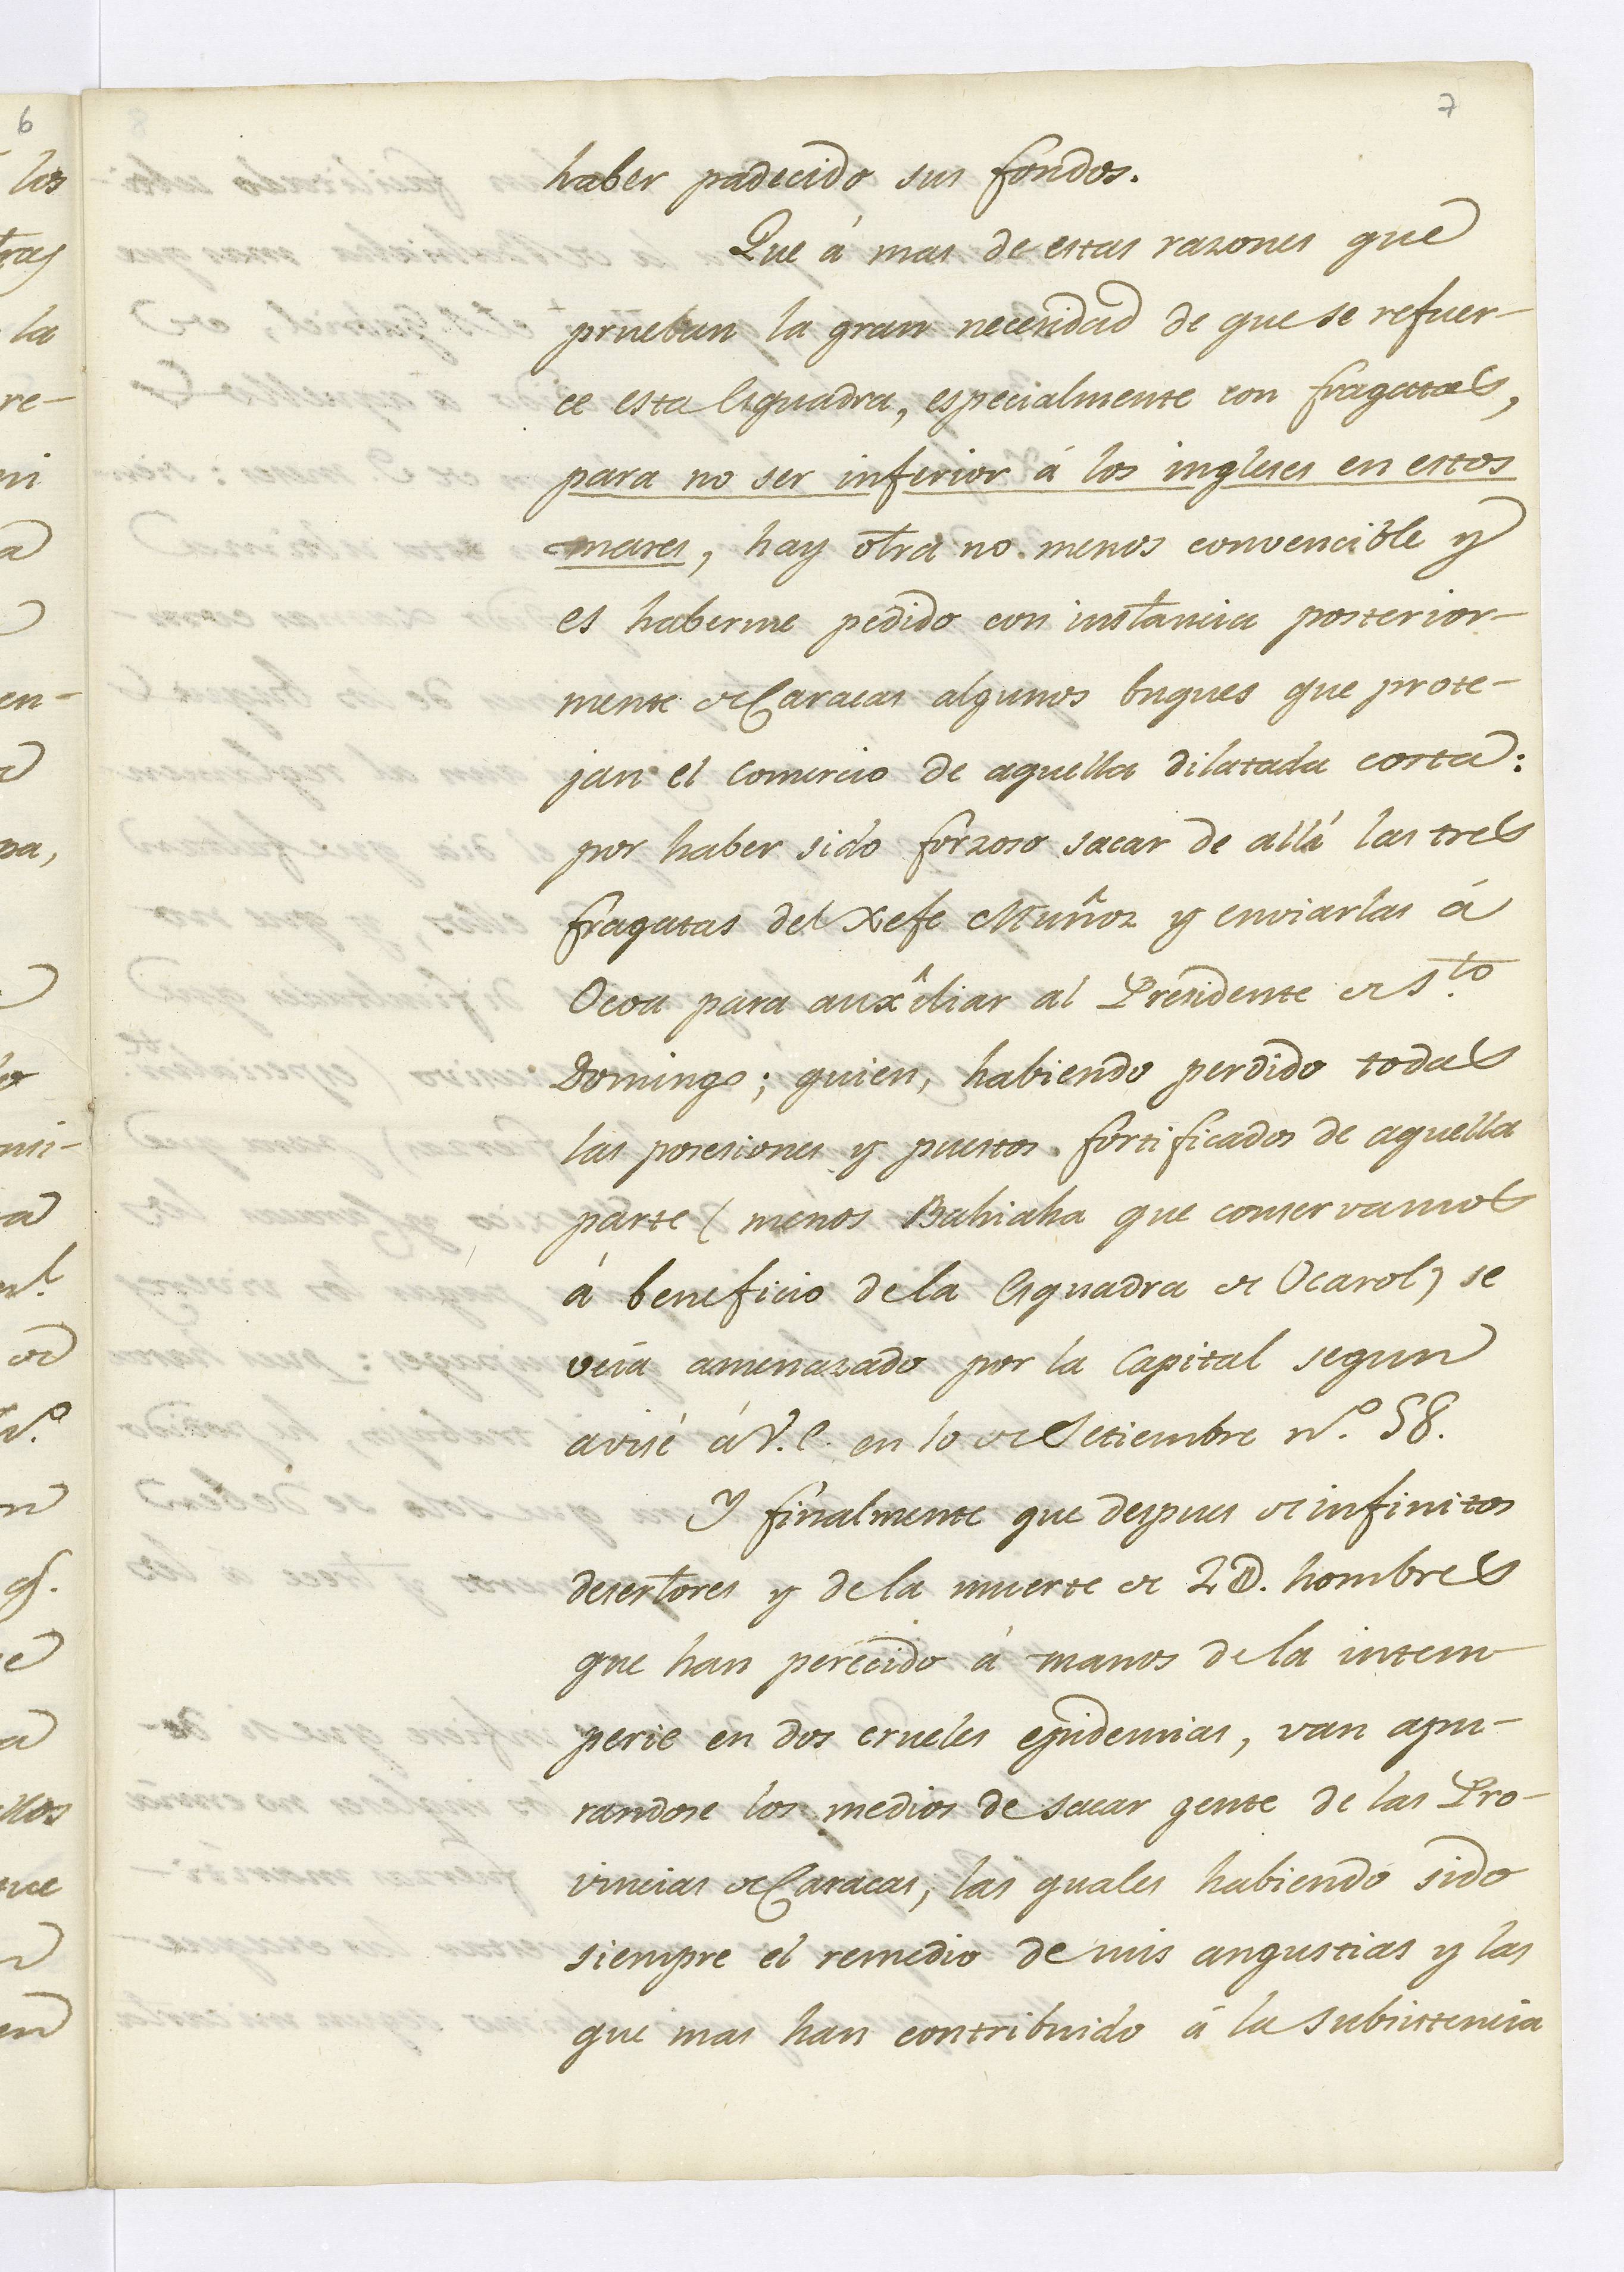 7
haber padecido sus fondos.
Que á mas de estas razones que
prueban la gran necesidad de que se refuer-
ce esta Esquadra, especialmente con fragatas,
para no ser inferior á los ingleses en estos
mares, hay otra no menos convencible y
es haberme pedido con instancia posterior-
mente de Caracas algunos buques que prote-
jan el comercio de aquella dilatada costa:
por haber sido forzoso sacar de allá las tres
fragatas del Xefe Muñoz y enviarlas á
Ocoa para aux^iliar al Presidente de S.to
Domingo; quien, habiendo perdido todas
las posesiones y puestos fortificados de aquella
parte (menos Bahiaha que conservamos
á beneficio de la Esquadra de Ocarol) se
veía amenazado por la Capital segun
avisé á V.E. en 10 de Setiembre n.º 58.
Y finalmente que despues de infinitos
desertores y de la muerte de 2D. hombres
que han perecido á manos de la intem
perie en dos crueles epidemias, van apu-
randose los medios de sacar gente de las Pro-
vincias de Caracas, las quales habiendo sido
siempre el remedio de mis angustias y las
que mas han contribuido á la subsistencia
6
los
tras
la
re-
ni
en-
pa,